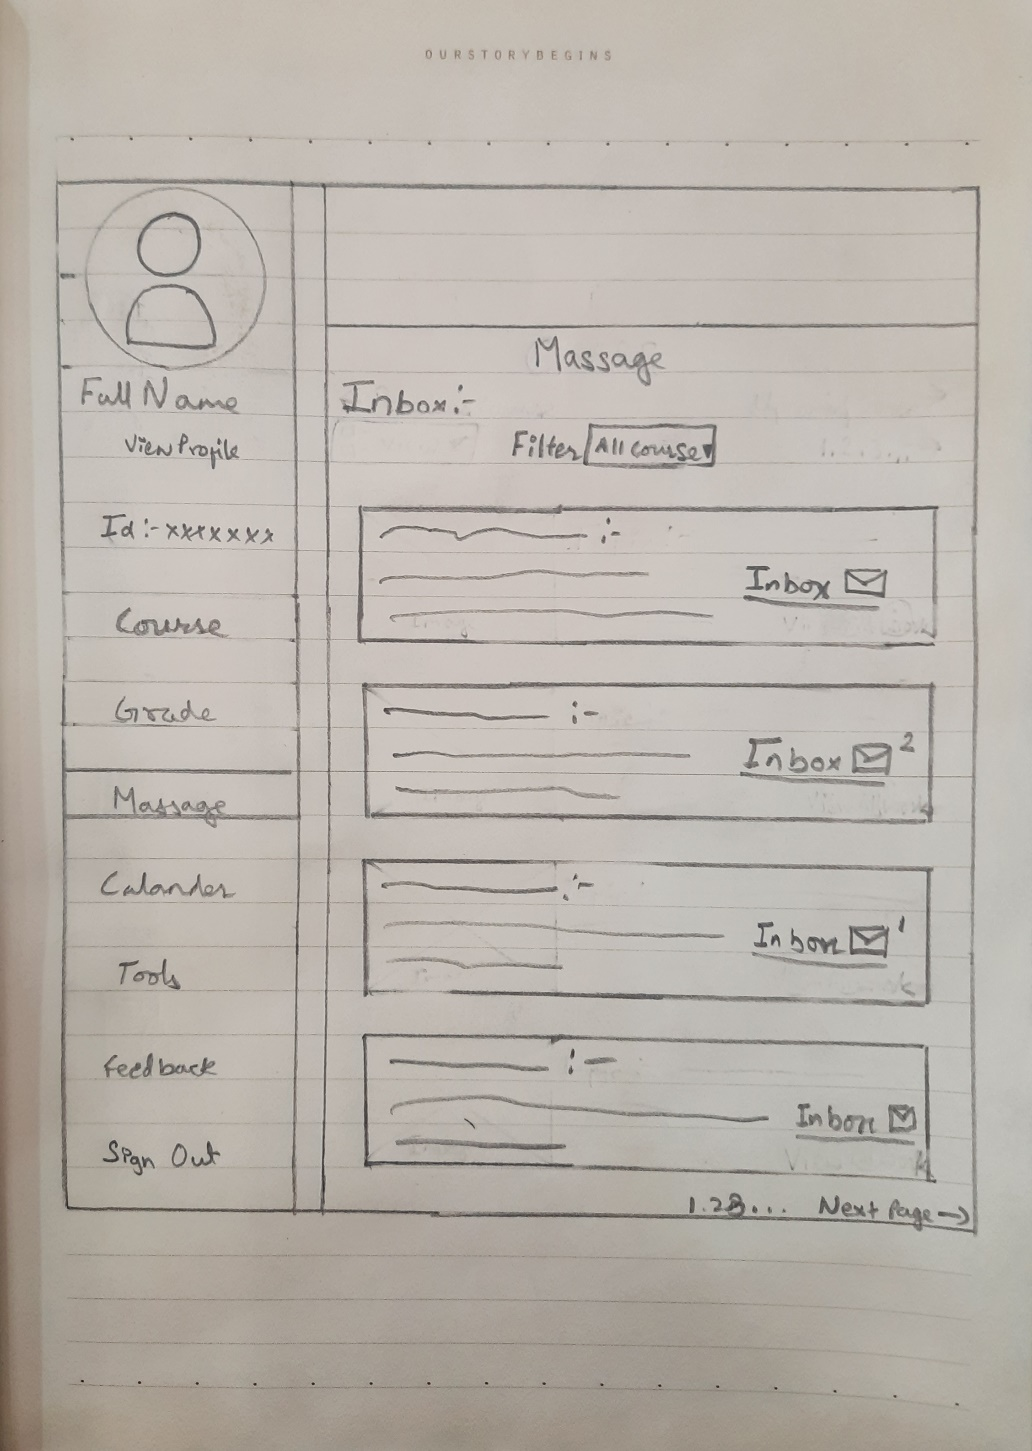 OURSTORYBEGINS
Full Name
View Profile
Id :- xxxxxxx
Course
Grade
Massage
Calander
Tools
Feedback
Sign Out
Massage
Inbox:-
Filter All course
:-
Inbox
:-
Inbox 2
:-
Inbox 1
:-
Inbox
1.23... Next Page →